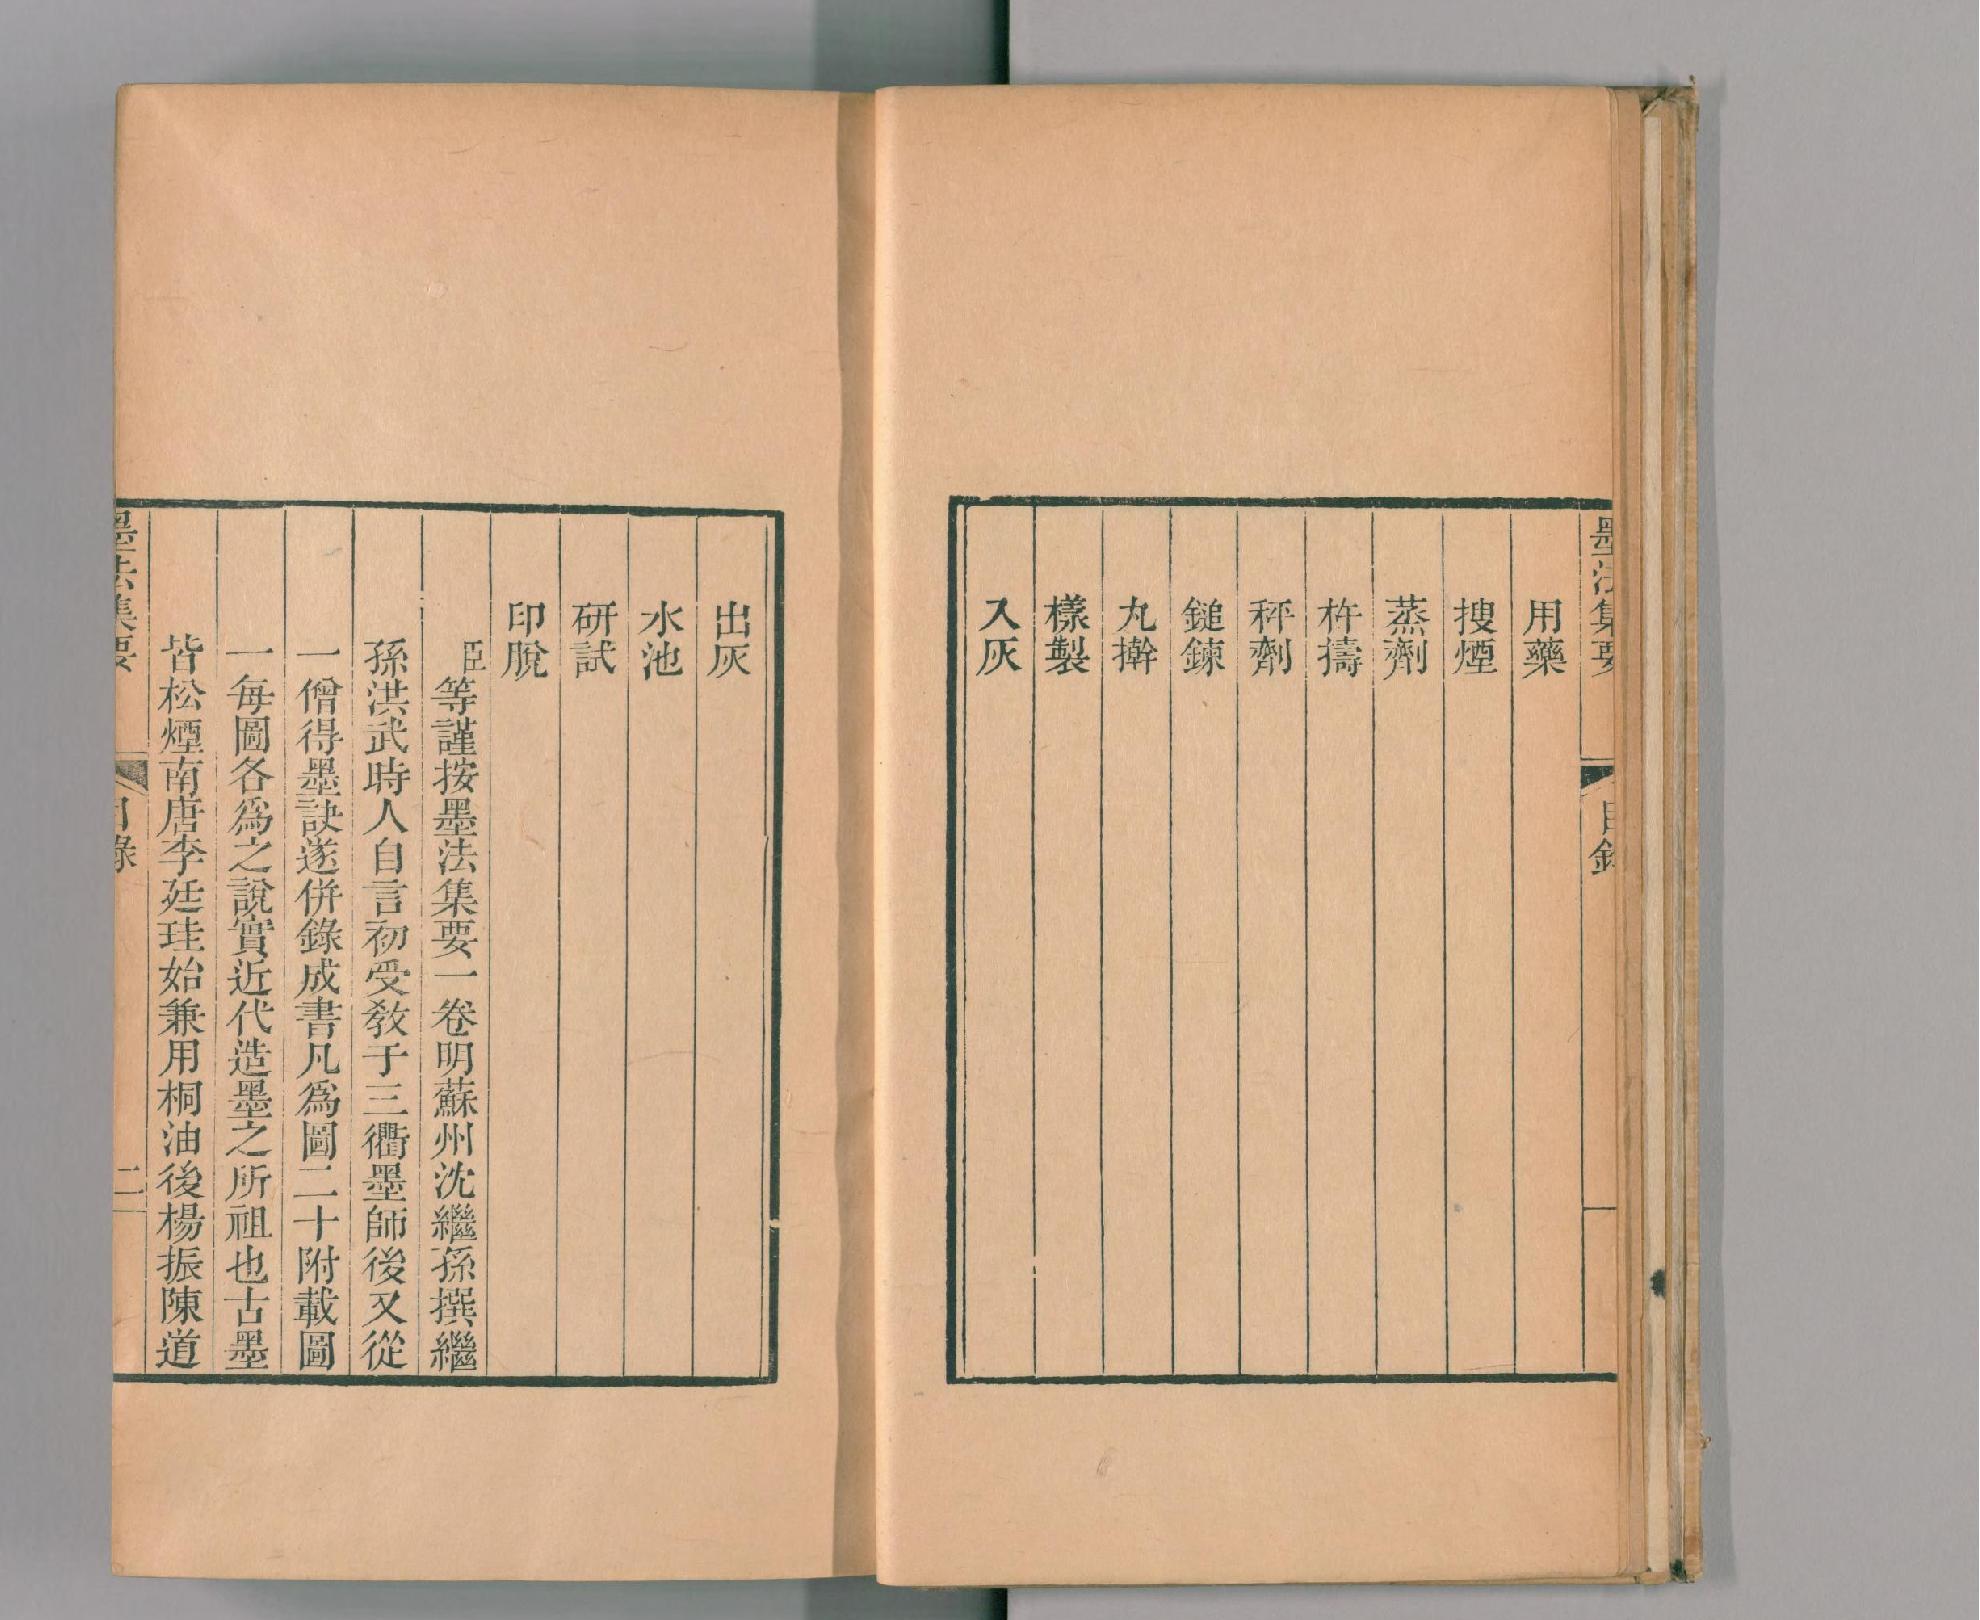 墨法集要
目錄
用藥
搜煙
蒸劑
杵擣
秤劑
鎚鍊
丸擀
樣製
入灰
出灰
水池
研試
印脫
臣等謹按墨法集要一卷明蘇州沈繼孫撰繼
孫洪武時人自言初受教于三衢墨師後又從
一僧得墨訣遂併錄成書凡為圖二十附載圖
一每圖各為之說實近代造墨之所祖也古墨
皆松煙南唐李廷珪始兼用桐油後楊振陳道
墨法集要
目錄
二